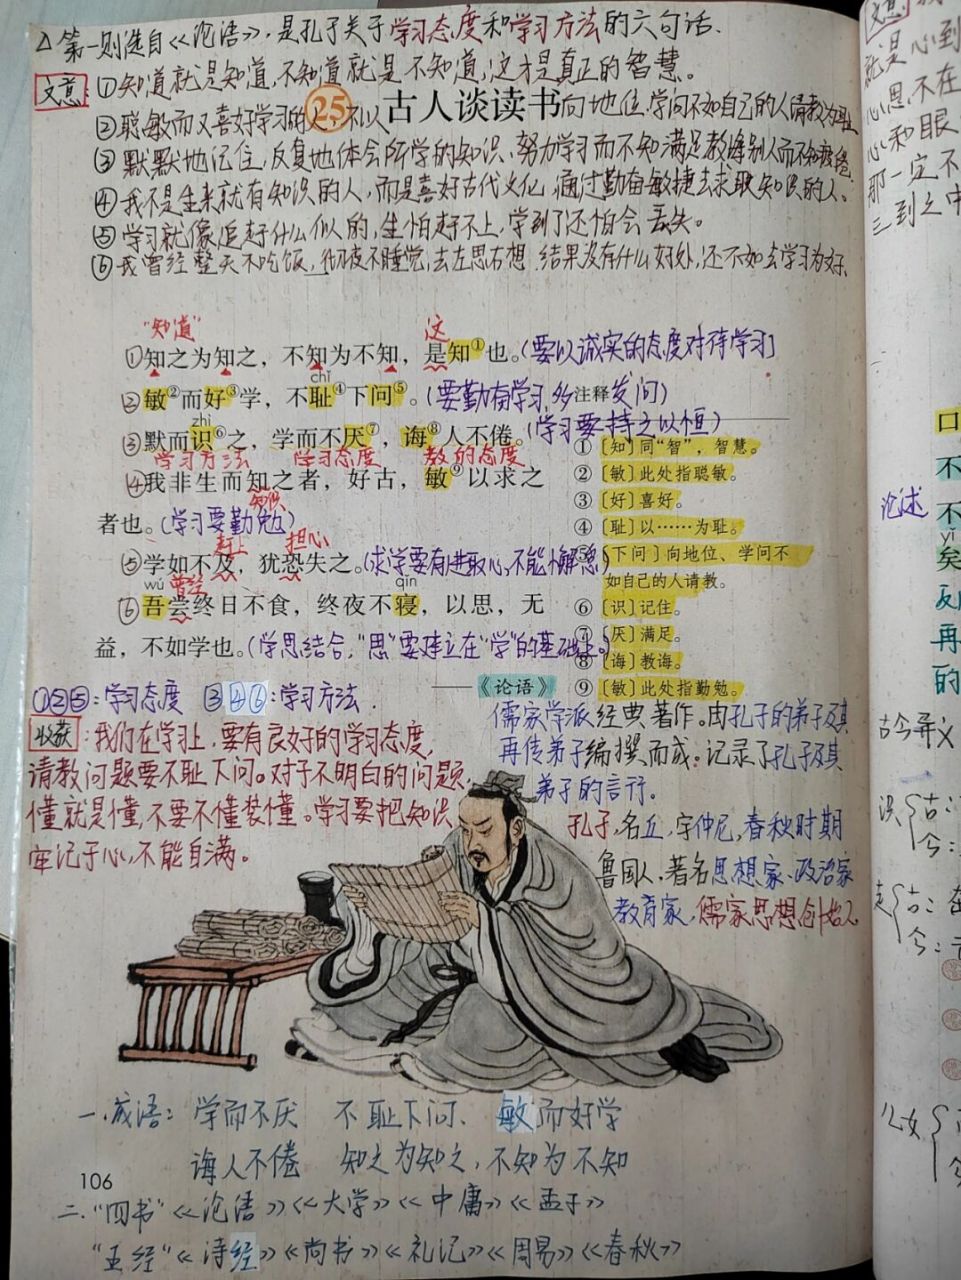 △第一则选自《论语》,是孔子关于学习态度和学习方法的六句话.
文意:①知道就是知道,不知道就是不知道,这才是真正的智慧。
25 古人谈读书
②聪敏而又喜好学习的人,不以向地位、学问不如自己的人请教为耻
③默默地记住,反复地体会所学的知识、努力学习而不知满足教诲别人而不知疲倦.
④我不是生来就有知识的人,而是喜好古代文化,通过勤奋敏捷去求取知识的人。
⑤学习就像追赶什么似的,生怕赶不上,学到了还怕会丢失。
⑥我曾经整天不吃饭,彻夜不睡觉,去左思右想,结果没有什么好处,还不如去学习为好.
"知道" 这
①知之为知之,不知为不知,是知①也。(要以诚实的态度对待学习)
chǐ
②敏②而好③学,不耻④下问⑤。(要勤奋学习,多发问)
注释
zhì
③默而识⑥之,学而不厌⑦,诲⑧人不倦。(学习要持之以恒)
学习方法 学习态度 教的态度
④我非生而知之者,好古,敏⑨以求之
知识
者也。(学习要勤勉)
赶上 担心
⑤学如不及,犹恐失之。(求学要有进取心,不能小懈怠)
wú 曾经 qǐn
⑥吾尝终日不食,终夜不寝,以思,无
益,不如学也。(学思结合,"思"要建立在"学"的基础上。)
——《论语》
①〔知〕同“智”,智慧。
②〔敏〕此处指聪敏。
③〔好〕喜好。
④〔耻〕以……为耻。
⑤〔下问〕向地位、学问不
如自己的人请教。
⑥〔识〕记住。
⑦〔厌〕满足。
⑧〔诲〕教诲。
⑨〔敏〕此处指勤勉。
①②⑤:学习态度 ③④⑥:学习方法.
收获:我们在学习上,要有良好的学习态度,
请教问题要不耻下问。对于不明白的问题,
懂就是懂,不要不懂装懂。学习要把知识
牢记于心,不能自满。
儒家学派经典著作。由孔子的弟子及其
再传弟子编撰而成。记录了孔子及其
弟子的言行.
孔子,名丘,字仲尼,春秋时期
鲁国人.著名思想家、政治家
教育家,儒家思想创始人
一.成语: 学而不厌 不耻下问、 敏而好学
诲人不倦 知之为知之,不知为不知
106
二."四书"《论语》《大学》《中庸》《孟子》
"五经"《诗经》《尚书》《礼记》《周易》《春秋》
就是心到
心思,不在
心和眼
那一定不
三到之中
口
不
论述 不
yǐ
矣
反
再
的
古今异义
识 古:
今:
走 古:
今: